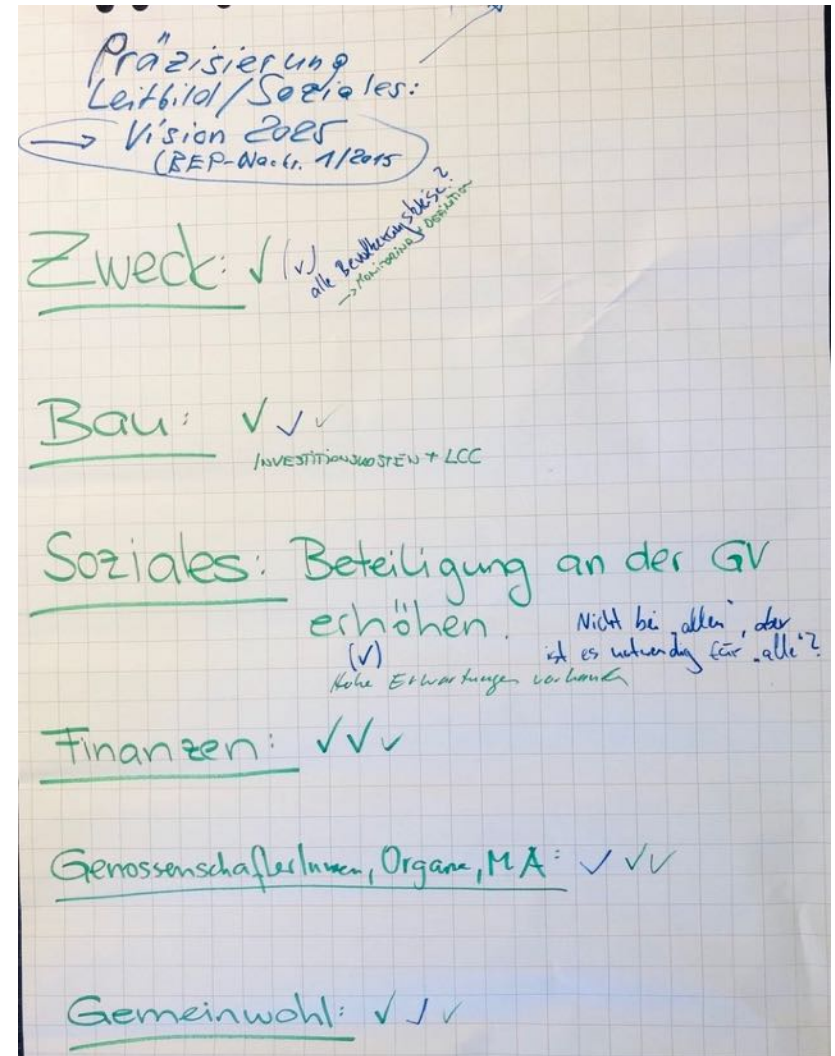 Präzisierung
Leitbild/Soziales:
→ Vision 2025
(BEP-Nachr. 1/2015)
Zweck: ✓ (✓)
alle Bevölkerungskreise?
→ MONITORING + DEFINITION
Bau: ✓ ✓ ✓
INVESTITIONSKOSTEN + LCC
Soziales: Beteiligung an der GV
erhöhen.
(✓)
Nicht bei „allen", aber
ist es notwendig für „alle"?
Hohe Erwartungen vorhanden
Finanzen: ✓ ✓ ✓
GenossenschafterInnen, Organe, MA: ✓ ✓ ✓
Gemeinwohl: ✓ ✓ ✓